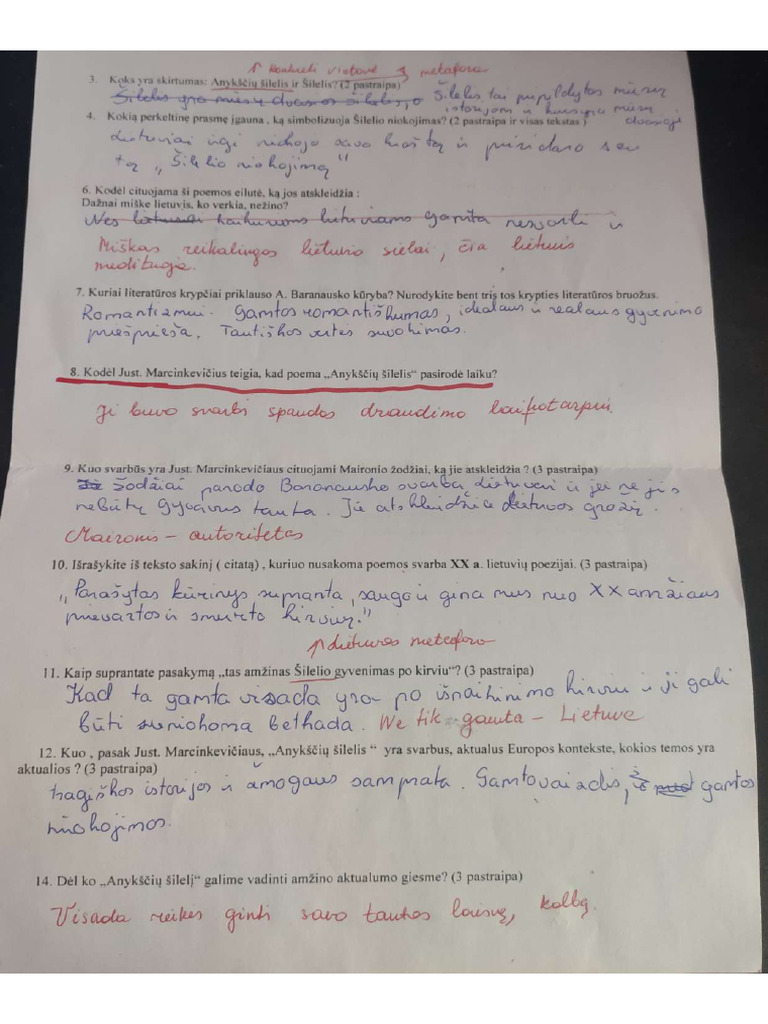 ↑ konkreti vietovė → metafora
3. Koks yra skirtumas: Anykščių šilelis ir Šilelis? (2 pastraipa)
Šilelis yra mūsų dvasios šilelis, o Šilelis tai papildytas mūsų
istorijom ir kuris yra mūsų
4. Kokią perkeltinę prasmę įgauna , ką simbolizuoja Šilelio niokojimas? (2 pastraipa ir visas tekstas ) dvasioji
Lietuviai irgi niokojo savo kraštą ir prisidaro sau
tą „Šilelio niokojimą"
6. Kodėl cituojama ši poemos eilutė, ką jos atskleidžia :
Dažnai miške lietuvis, ko verkia, nežino?
Nes lietuviai kaikuriems lietuviams gamta nesvarbi ir
Miškas reikalingas lietuvio sielai, čia lietuvis
medituoja.
7. Kuriai literatūros krypčiai priklauso A. Baranausko kūryba? Nurodykite bent tris tos krypties literatūros bruožus.
Romantizmui. Gamtos romantiškumas, idealaus ir realaus gyvenimo
priešprieša, Tautiškos vertės suvokimas.
8. Kodėl Just. Marcinkevičius teigia, kad poema „Anykščių šilelis" pasirodė laiku?
Ji buvo svarbi spaudos draudimo laikotarpiu.
9. Kuo svarbūs yra Just. Marcinkevičiaus cituojami Maironio žodžiai, ką jie atskleidžia ? (3 pastraipa)
Šodžiai parodo Baranausko svarbą Lietuvai ir jei ne jis
nebūtų gyvavus tauta. Jie atskleidžia Lietuvos grožį.
Maironis – autoritetas
10. Išrašykite iš teksto sakinį ( citatą) , kuriuo nusakoma poemos svarba XX a. lietuvių poezijai. (3 pastraipa)
„Parašytas kūrinys supranta, saugo ir gina mus nuo XX amžiaus
prievartos ir smurto kirvių."
↑ Lietuvos metafora
11. Kaip suprantate pasakymą „tas amžinas Šilelio gyvenimas po kirviu"? (3 pastraipa)
Kad ta gamta visada yra po išnaikinimo kirviu ir ji gali
būti suniokoma betkada. Ne tik gamta – Lietuva
12. Kuo , pasak Just. Marcinkevičiaus, „Anykščių šilelis “ yra svarbus, aktualus Europos kontekste, kokios temos yra
aktualios ? (3 pastraipa)
tragiškos istorijos ir žmogaus samprata. Gamtovaizdis, gamtos
niokojimos.
14. Dėl ko „Anykščių šilelį" galime vadinti amžino aktualumo giesme? (3 pastraipa)
Visada reikės ginti savo tautos laisvę, kalbą.